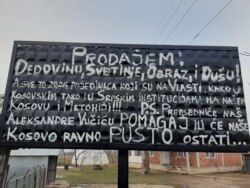 PRODAJEM:
DEDOVINU, SVETINJE, OBRAZ, I DUŠU!
A SVE TO ZBOG POJEDINACA KOJI SU NA VLASTI, KAKO U
KOSOVSKIM TAKO I U SRPSKIM INSTITUCIJAMA NA NAŠEM
KOSOVU I METOHIJI!!! P.S. PREDSEDNIČE NAŠ
ALEKSANDRE VUČIĆU POMAGAJ ILI ĆE NAŠE
KOSOVO RAVNO PUSTO OSTATI...